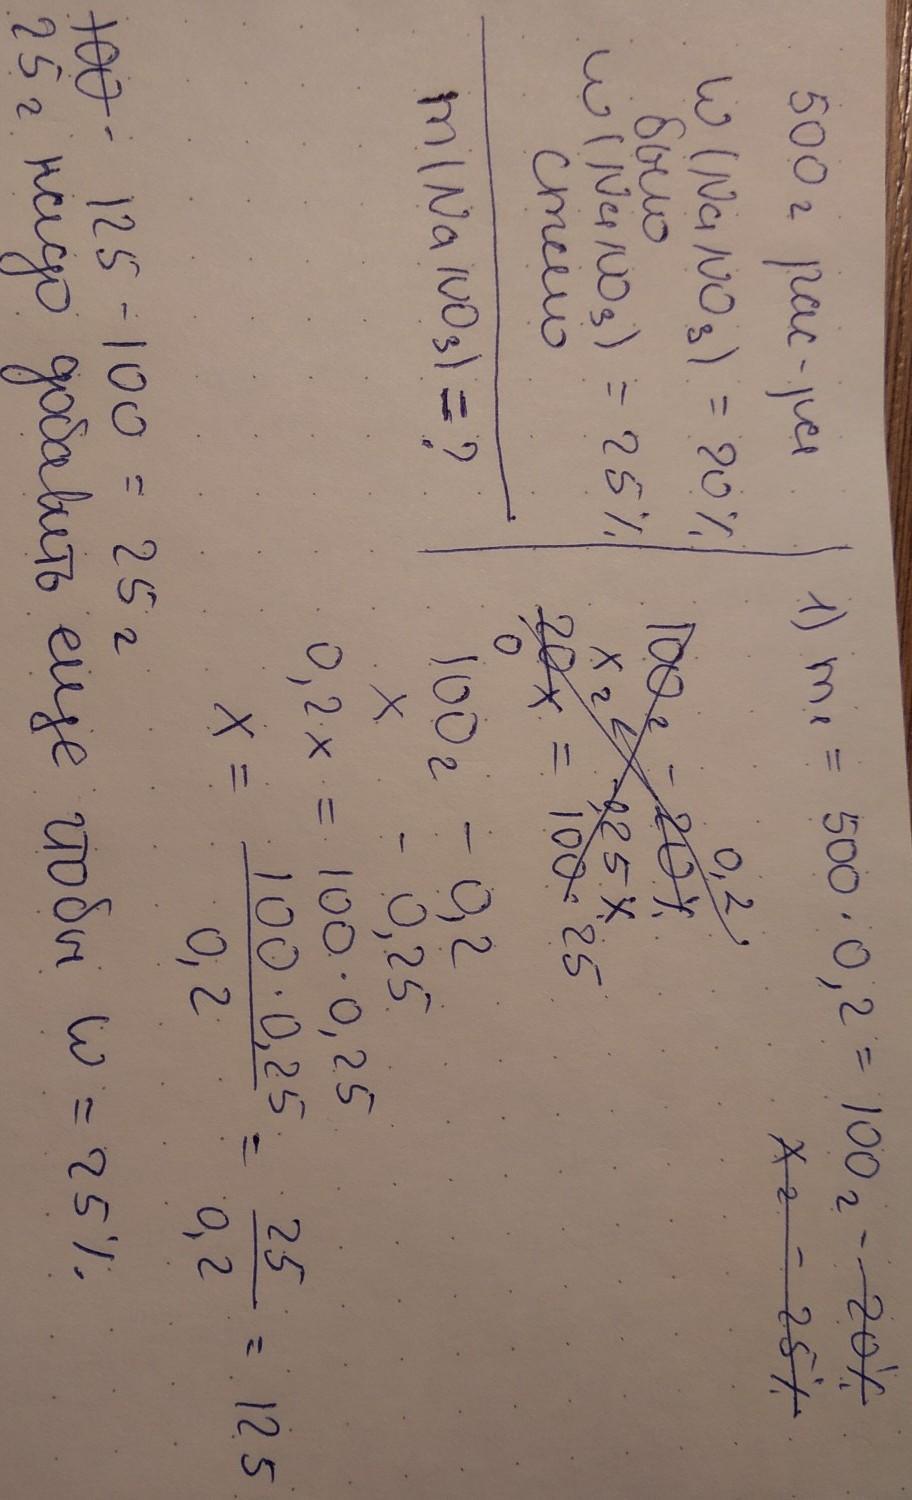 500 г рас-ра
w (NaNO3) = 20%
было
w (NaNO3) = 25%
стало
m(NaNO3) = ?
1) m1 = 500 · 0,2 = 100 г - 20%
x г - 25%
0,2
100 г - 20%
x г - 0,25%
20x = 100 · 25
0
100 г - 0,2
x - 0,25
0,2x = 100 · 0,25
x = 100 · 0,25 / 0,2 = 25 / 0,2 = 125
100 - 125 - 100 = 25 г
25 г надо добавить еще чтобы w = 25%